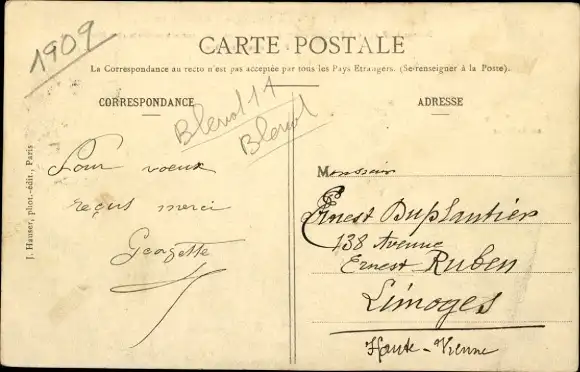 1909
CARTE POSTALE
La Correspondance au recto n'est pas acceptée par tous les Pays Etrangers. (Se renseigner à la Poste).
CORRESPONDANCE
ADRESSE
J. Hauser, phot.-édit., Paris
Pour voeux
reçus merci
Georgette
Monsieur
Ernest Duplantier
138 Avenue
Ernest Ruben
Limoges
Haute-Vienne